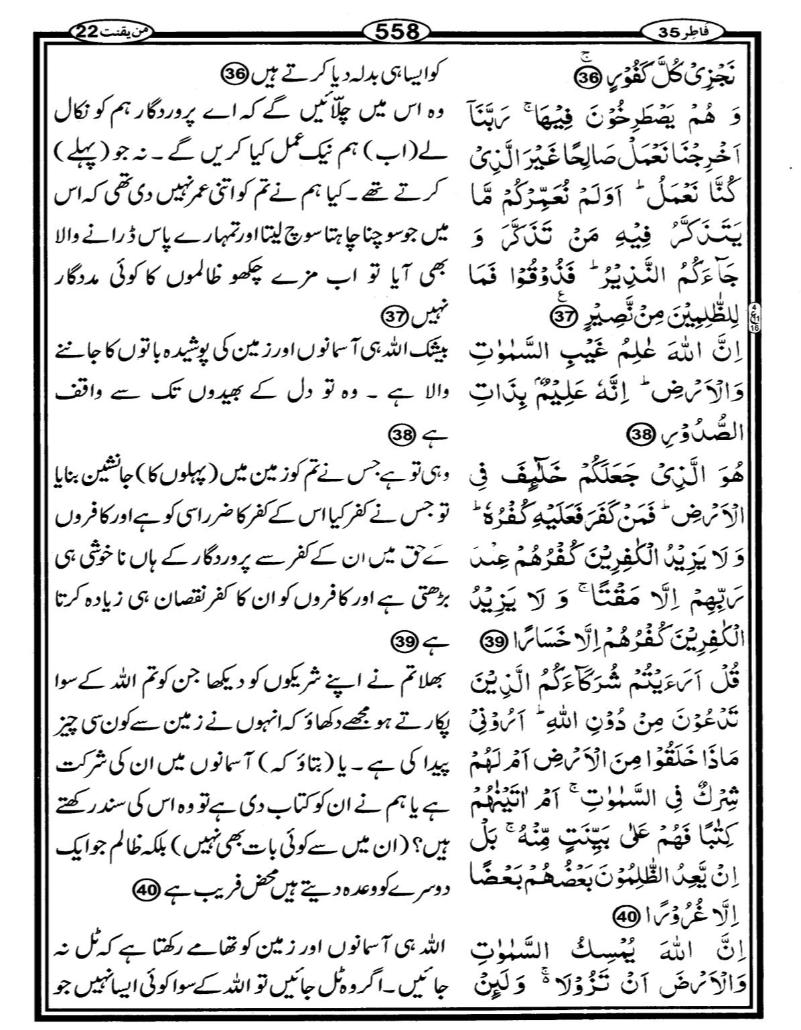 فَاطِر 35
558
من یقنت 22
نَجْزِیْ كُلَّ كَفُوْرٍ ۚ 36
وَ هُمْ یَصْطَرِخُوْنَ فِیْهَا ۚ رَبَّنَاۤ
اَخْرِجْنَا نَعْمَلْ صَالِحًا غَیْرَ الَّذِیْ
كُنَّا نَعْمَلُ ؕ اَوَلَمْ نُعَمِّرْكُمْ مَّا
یَتَذَكَّرُ فِیْهِ مَنْ تَذَكَّرَ وَ
جَآءَكُمُ النَّذِیْرُ ؕ فَذُوْقُوْا فَمَا
لِلظّٰلِمِیْنَ مِنْ نَّصِیْرٍ 37
اِنَّ اللهَ عٰلِمُ غَیْبِ السَّمٰوٰتِ
وَالْاَرْضِ ؕ اِنَّهٗ عَلِیْمٌۢ بِذَاتِ
الصُّدُوْرِ 38
هُوَ الَّذِیْ جَعَلَكُمْ خَلٰٓئِفَ فِی
الْاَرْضِ ؕ فَمَنْ كَفَرَ فَعَلَیْهِ كُفْرُهٗ ؕ
وَ لَا یَزِیْدُ الْكٰفِرِیْنَ كُفْرُهُمْ عِنْدَ
رَبِّهِمْ اِلَّا مَقْتًا ۚ وَ لَا یَزِیْدُ
الْكٰفِرِیْنَ كُفْرُهُمْ اِلَّا خَسَارًا 39
قُلْ اَرَءَیْتُمْ شُرَكَآءَكُمُ الَّذِیْنَ
تَدْعُوْنَ مِنْ دُوْنِ اللهِ ؕ اَرُوْنِیْ
مَاذَا خَلَقُوْا مِنَ الْاَرْضِ اَمْ لَهُمْ
شِرْكٌ فِی السَّمٰوٰتِ ۚ اَمْ اٰتَیْنٰهُمْ
كِتٰبًا فَهُمْ عَلٰی بَیِّنَتٍ مِّنْهُ ۚ بَلْ
اِنْ یَّعِدُ الظّٰلِمُوْنَ بَعْضُهُمْ بَعْضًا
اِلَّا غُرُوْرًا 40
اِنَّ اللهَ یُمْسِكُ السَّمٰوٰتِ
وَالْاَرْضَ اَنْ تَزُوْلَا ۚ۬ وَ لَىِٕنْ
کو ایسا ہی بدلہ دیا کرتے ہیں 36
وہ اس میں چلّائیں گے کہ اے پروردگار ہم کو نکال
لے (اب) ہم نیک عمل کیا کریں گے۔ نہ جو (پہلے)
کرتے تھے۔ کیا ہم نے تم کو اتنی عمر نہیں دی تھی کہ اس
میں جو سوچنا چاہتا سوچ لیتا اور تمہارے پاس ڈرانے والا
بھی آیا تو اب مزے چکھو ظالموں کا کوئی مددگار
نہیں 37
بیشک اللہ ہی آسمانوں اور زمین کی پوشیدہ باتوں کا جاننے
والا ہے ۔ وہ تو دل کے بھیدوں تک سے واقف
ہے 38
وہی تو ہے جس نے تم کو زمین میں (پہلوں کا) جانشین بنایا
تو جس نے کفر کیا اس کے کفر کا ضرر اسی کو ہے اور کافروں
ےحق میں ان کے کفر سے پروردگار کے ہاں ناخوشی ہی
بڑھتی ہے اور کافروں کو ان کا کفر نقصان ہی زیادہ کرتا
ہے 39
بھلا تم نے اپنے شریکوں کو دیکھا جن کو تم اللہ کے سوا
پکارتے ہو مجھے دکھاؤ کہ انہوں نے زمین سے کون سی چیز
پیدا کی ہے۔ یا (بتاؤ کہ) آسمانوں میں ان کی شرکت
ہے یا ہم نے ان کو کتاب دی ہے تو وہ اس کی سند رکھتے
ہیں؟ (ان میں سے کوئی بات بھی نہیں) بلکہ ظالم جو ایک
دوسرے کو وعدہ دیتے ہیں محض فریب ہے 40
اللہ ہی آسمانوں اور زمین کو تھامے رکھتا ہے کہ ٹل نہ
جائیں۔ اگر وہ ٹل جائیں تو اللہ کے سوا کوئی ایسا نہیں جو